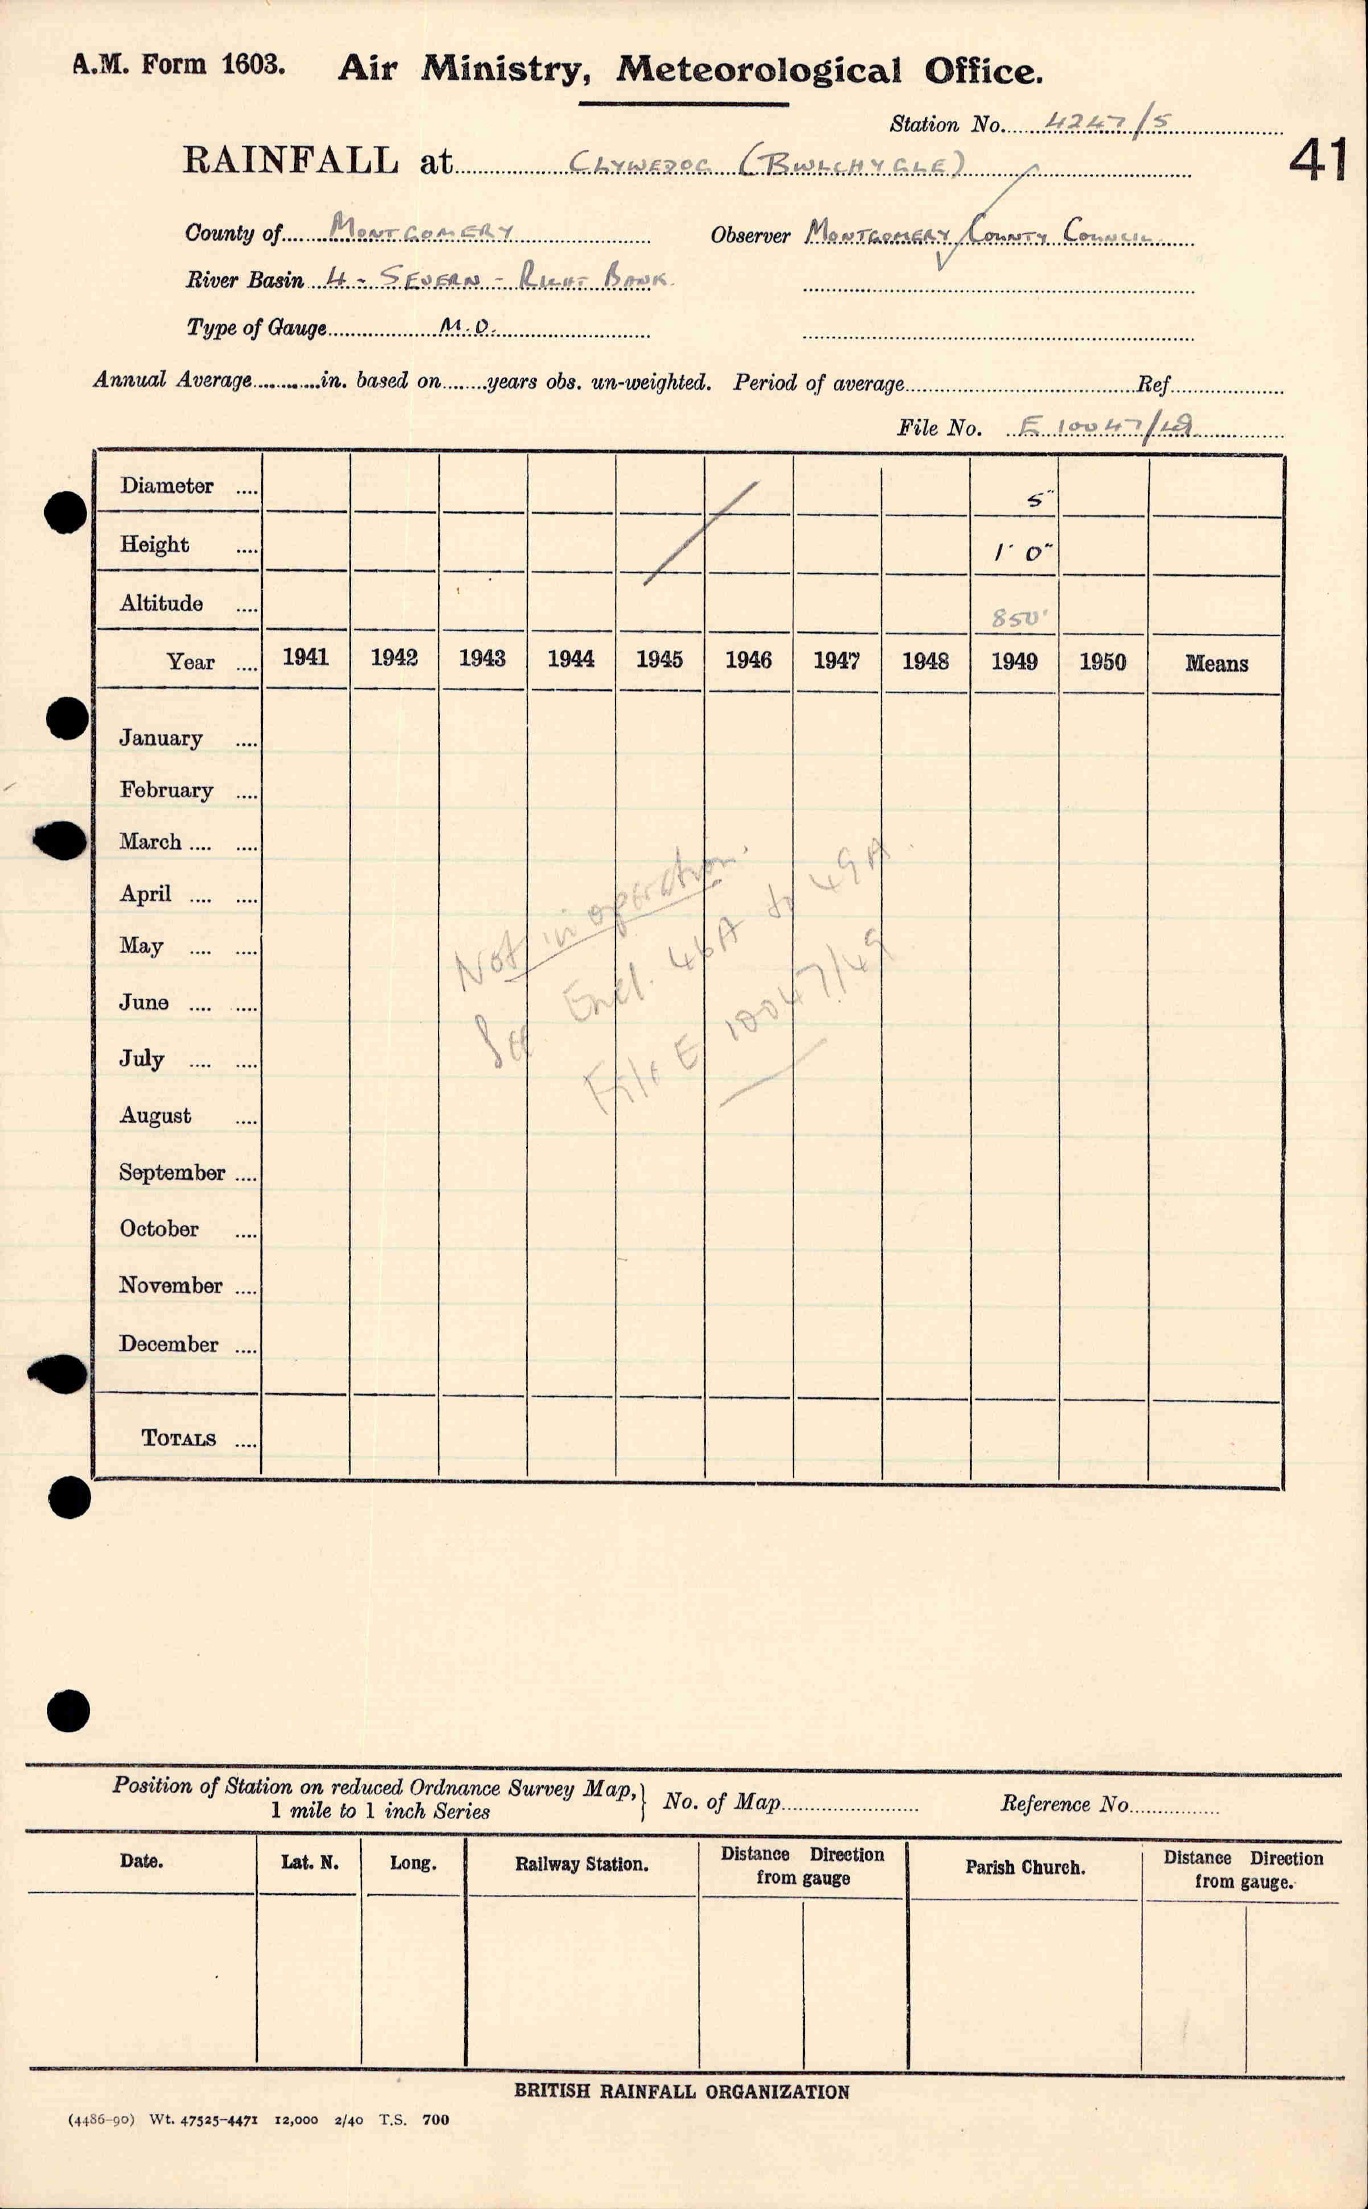 A.M. Form 1603. Air Ministry, Meteorological Office.
Station No. 4247/5
41
RAINFALL at CLYWEDOG (BWLCHYGLE)
County of MONTGOMERY Observer MONTGOMERY COUNTY COUNCIL
River Basin 4 - SEVERN - RIGHT BANK.
Type of Gauge M.O.
Annual Average in. based on years obs. un-weighted. Period of average Ref
File No. E 10047/49
Diameter .... 5"
Height .... 1' 0"
Altitude .... 850'
Year .... 1941 1942 1943 1944 1945 1946 1947 1948 1949 1950 Means
January ....
February ....
March .... ....
April .... ....
May .... ....
June .... ....
July .... ....
August ....
September ....
October ....
November ....
December ....
TOTALS ....
Not in operation.
See Encl. 46A to 49A.
File E 10047/49
Position of Station on reduced Ordnance Survey Map,
1 mile to 1 inch Series } No. of Map Reference No.
Date. Lat. N. Long. Railway Station. Distance Direction from gauge Parish Church. Distance Direction from gauge.
BRITISH RAINFALL ORGANIZATION
(4486-90) Wt. 47525-4471 12,000 2/40 T.S. 700